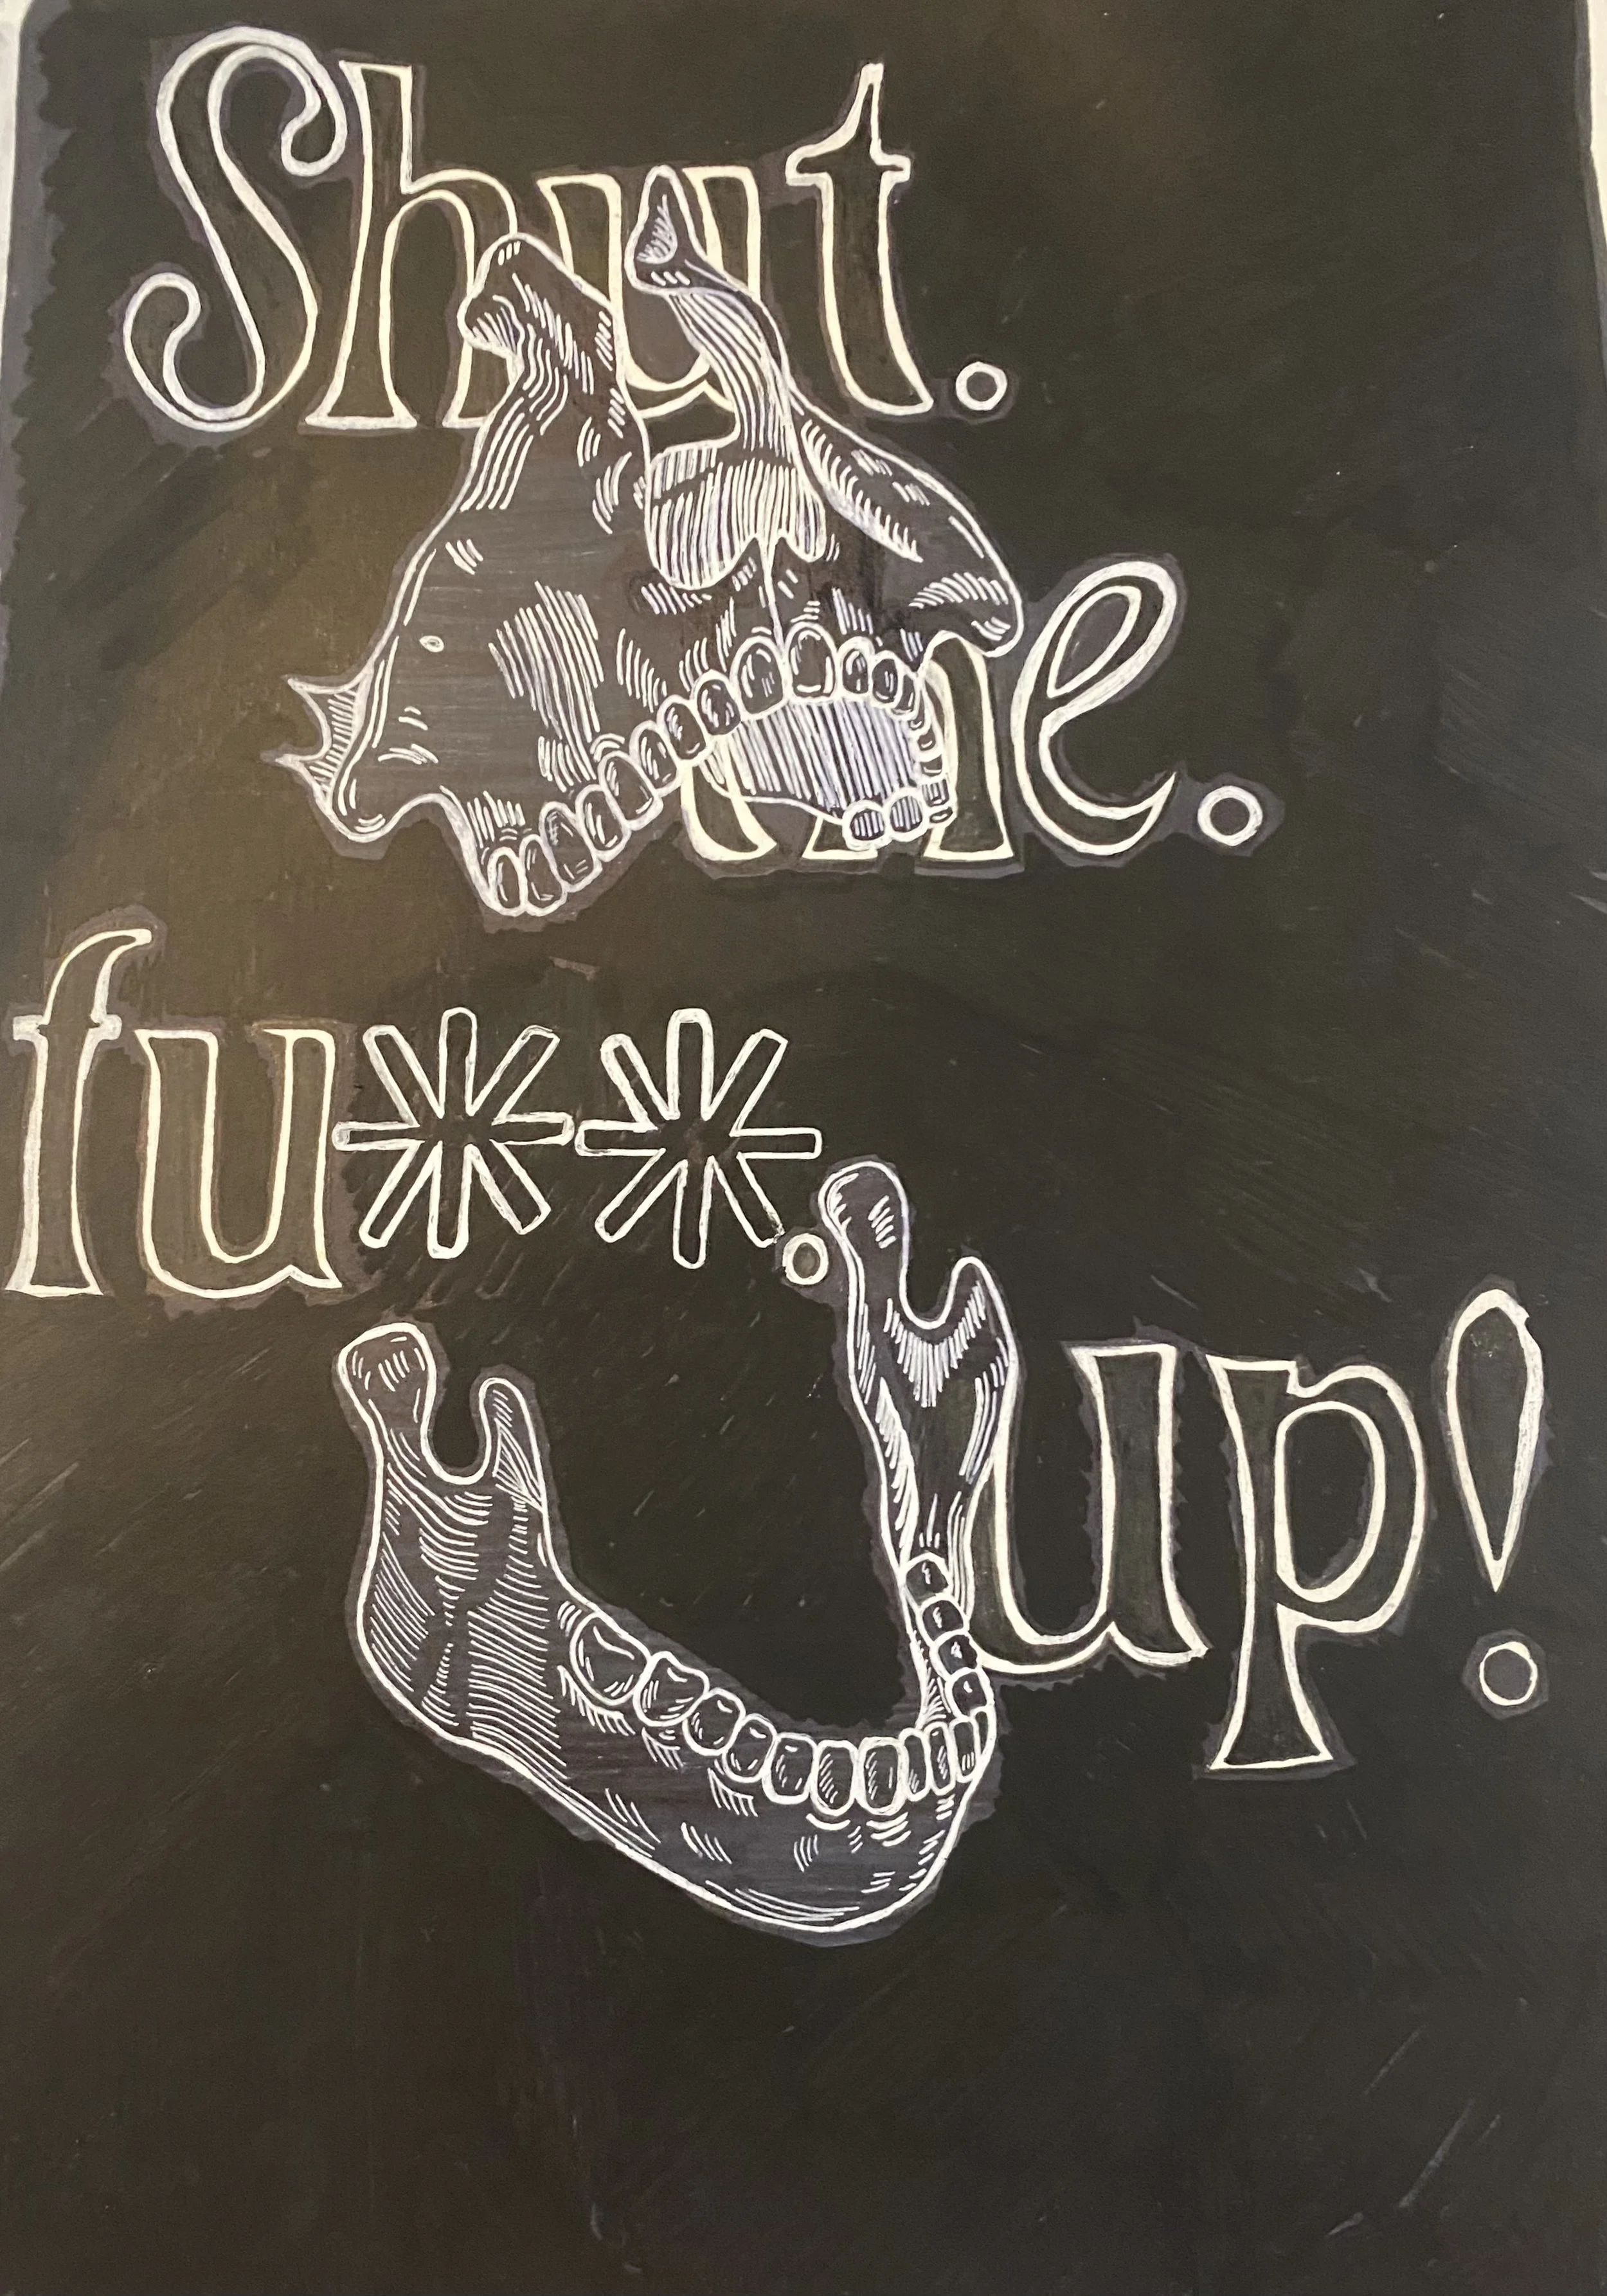 Shut.
the.
fu**.
up!